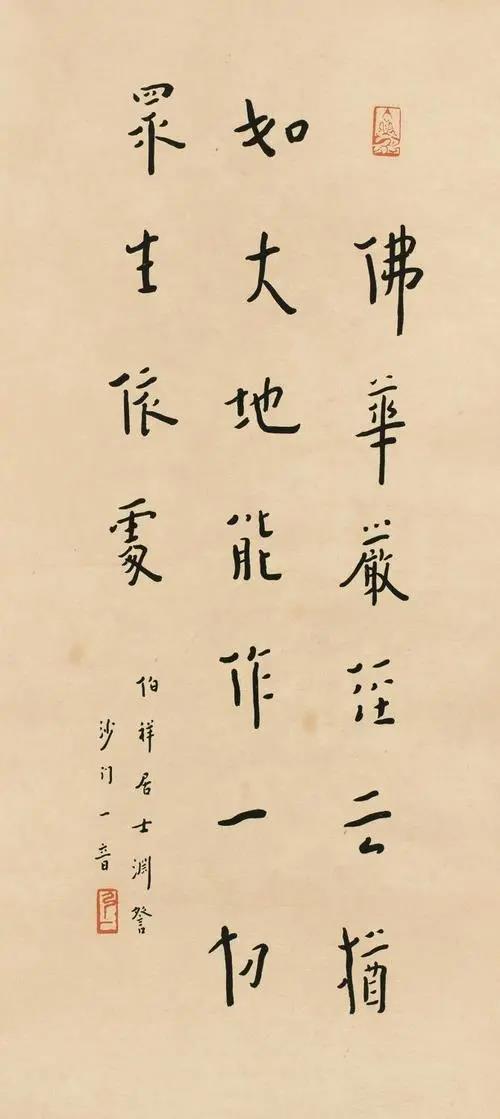 佛華嚴經云猶
如大地能作一切
眾生依處
伯祥居士淵詧
沙门一音